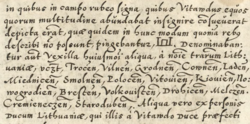 in quibus in campo rubeo signa, quibus Vitandus equus
quorum multitudine abundabat insignire consueverat
depicta erat, quæ quidem in hunc modum quoniam
describi non possunt pingebantur, Denominaban
tur aut Vexilla huiusmoi aliqua, à noīe trarum Lithu
uanicar, vozt, Trocen, Vilnen, Grodnen, Cownen,
Miednicen, Smolnen, Poloczen, Vitovien, Kiovien, No
wogrodien, Bresten, Volkouisken, Drohicen, Melcza,
Cremieneczen, Staroduben, Aliqua vero ex personis
Ducum Lithuaniæ, qui illis à Vitando Duce præfecti